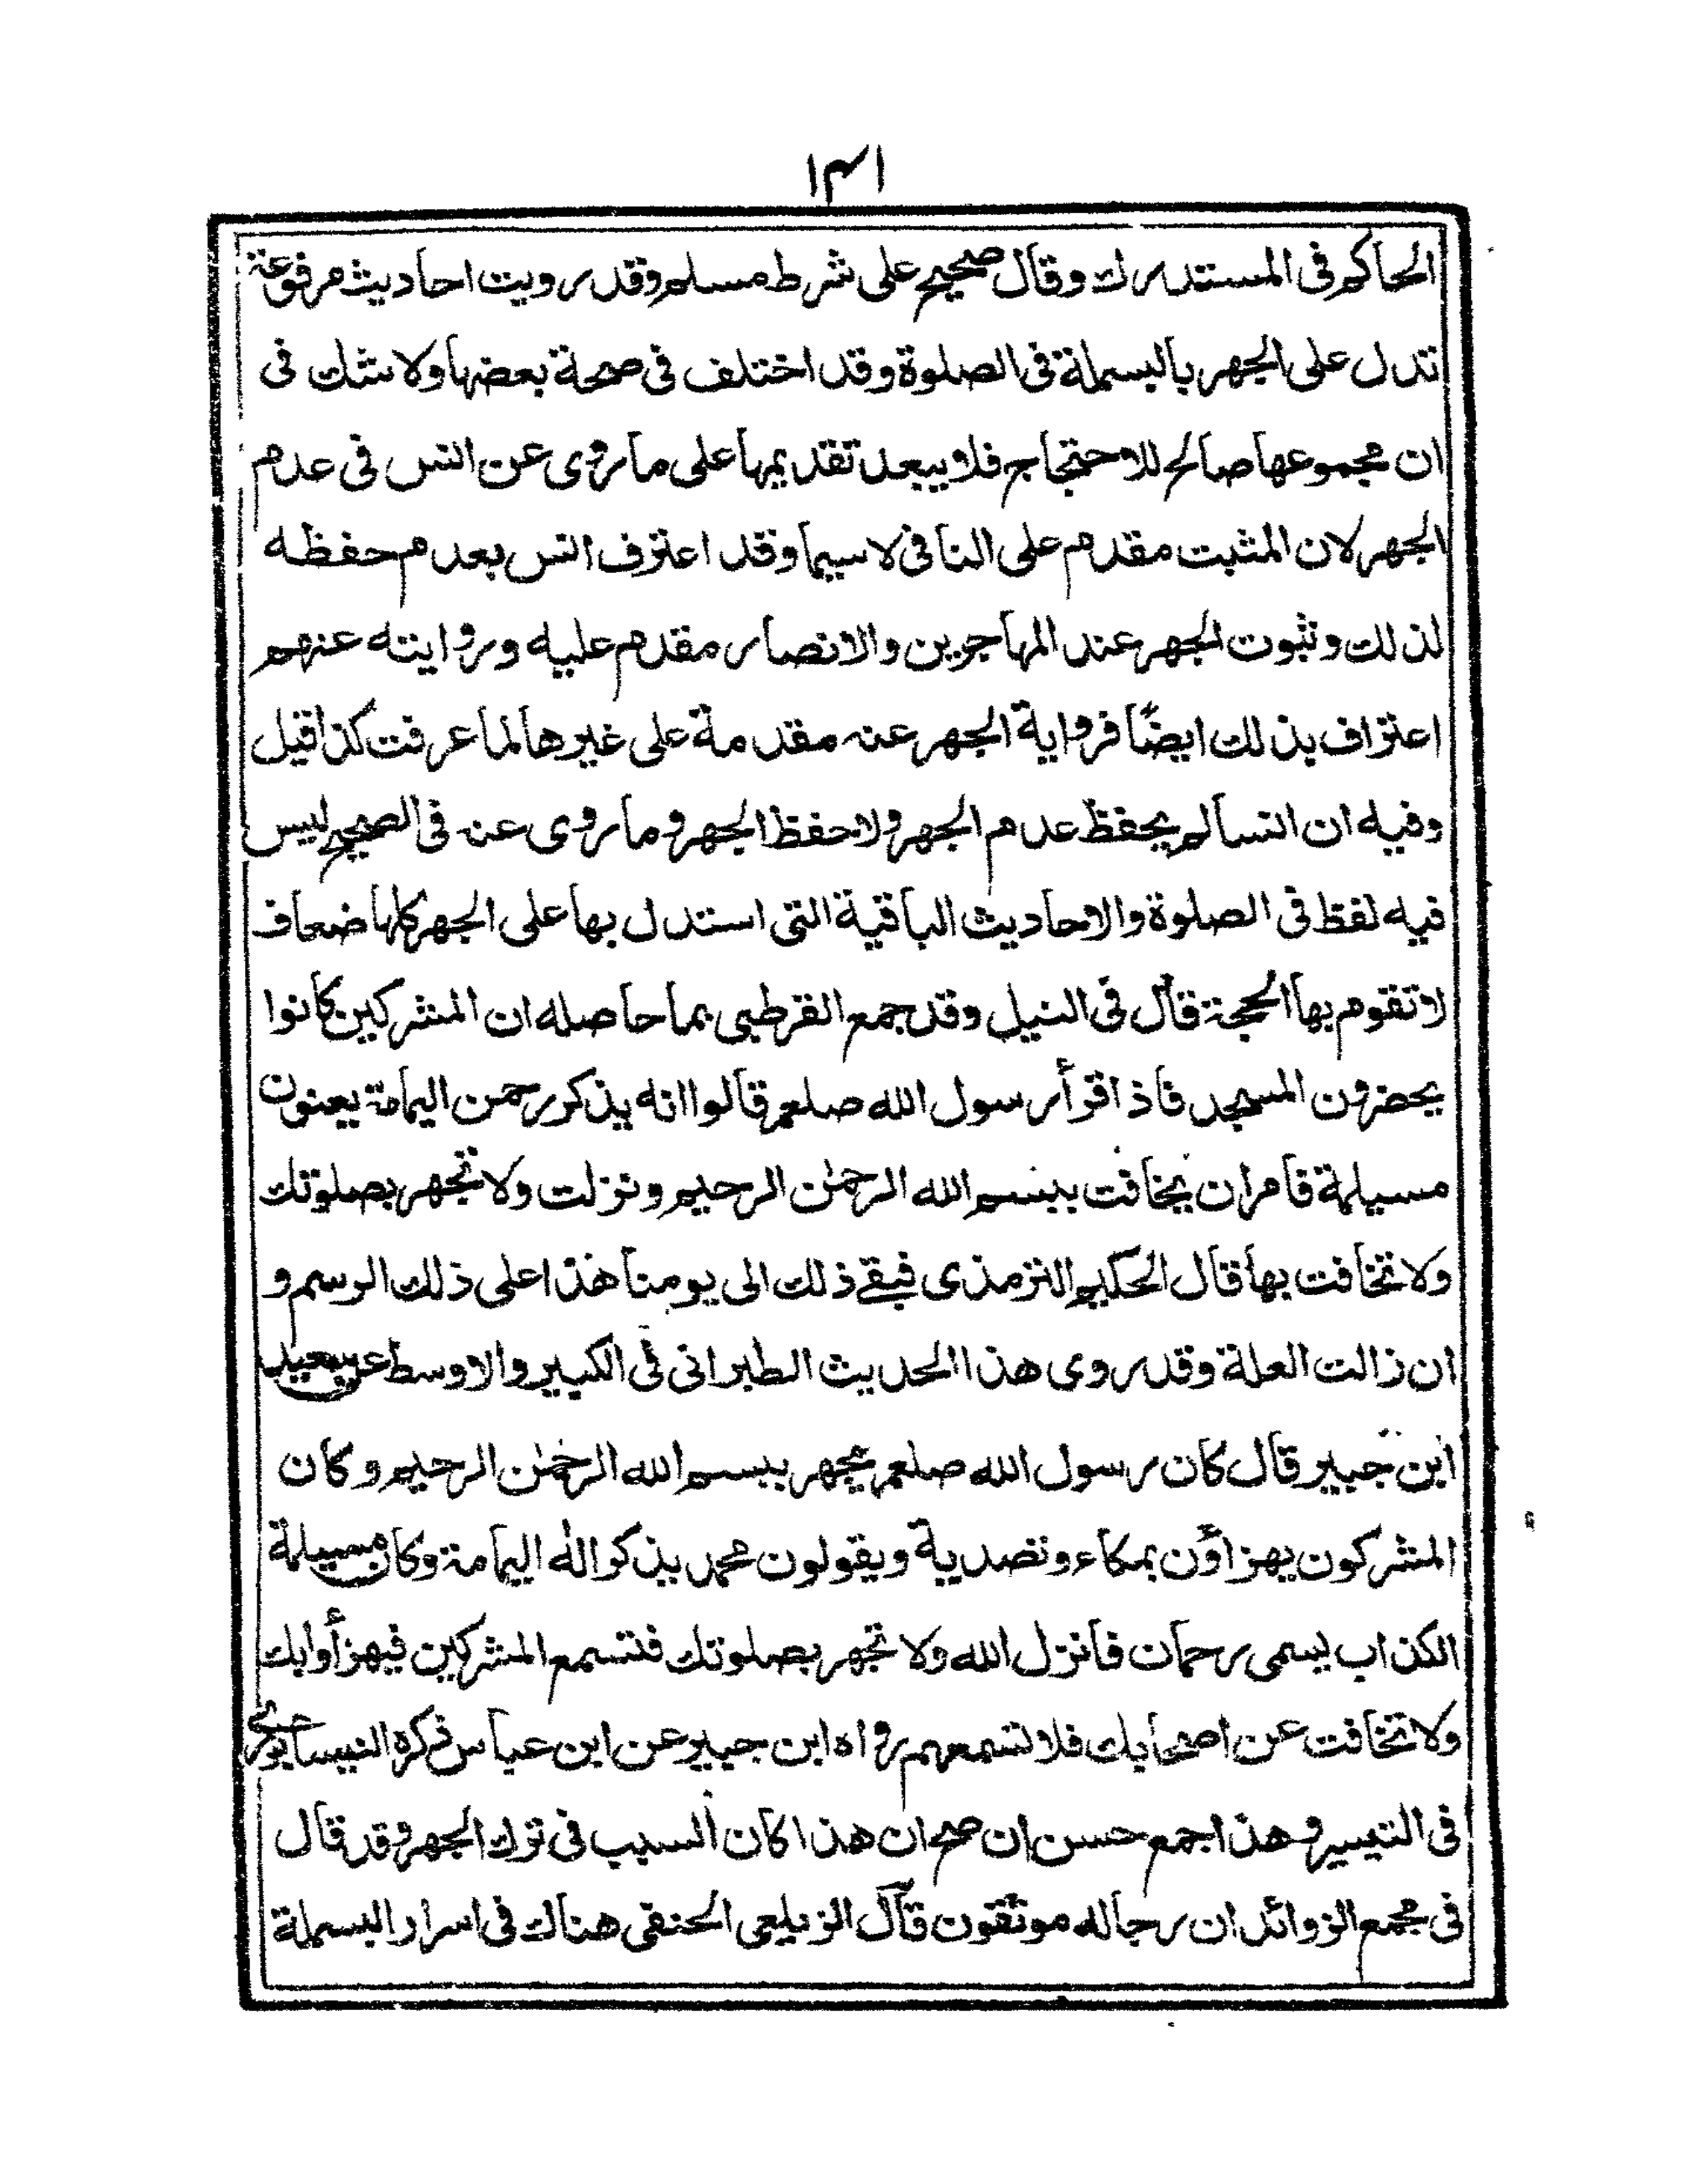 ١٣١
الحاكم فى المستدرك وقال صحيح على شرط مسلم وقد رويت احاديث مرفوعة
تدل على الجهر بالبسملة فى الصلوة وقد اختلف فى صحة بعضها ولا شك فى
ان مجموعها صالح للاحتجاج فلا يبعد تقديمها على ما روى عن انس فى عدم
الجهر لان المثبت مقدم على النافى لا سيما وقد اعترف انس بعدم حفظه
لذلك وثبوت الجهر عند المهاجرين والانصار مقدم عليه وروايته عنهم
اعتراف بذلك ايضًا فرواية الجهر عنه مقدمة على غيرها لما عرفت كذا قيل
وفيه ان انسا لم يحفظ عدم الجهر ولا حفظ الجهر وما روى عنه فى الصحيح ليس
فيه لفظ فى الصلوة والاحاديث الباقية التى استدل بها على الجهر كلها ضعاف
لا تقوم بها الحجة قال فى النيل وقد جمع القرطبى بما حاصله ان المشركين كانوا
يحضرون المسجد فاذا قرأ رسول الله صلعم قالوا انه يذكر رحمن اليمامة يعنون
مسيلمة فامر ان يخافت ببسم الله الرحمٰن الرحيم ونزلت ولا تجهر بصلوتك
ولا تخافت بها قال الحكيم الترمذى فبقے ذلك الى يومنا هذا على ذلك الرسم و
ان زالت العلة وقد روى هذا الحديث الطبرانى فى الكبير والاوسط عن سعيد
ابن جبير قال كان رسول الله صلعم يجهر ببسم الله الرحمٰن الرحيم وكان
المشركون يهزاؤن بمكاء وتصدية ويقولون محمد يذكر اله اليمامة وكان مسيلمة
الكذاب يسمى رحمان فانزل الله ولا تجهر بصلوتك فتسمع المشركين فيهزأوا بك
ولا تخافت عن اصحابك فلا تسمعهم رواه ابن جبير عن ابن عباس ذكره النيسابورى
فى التيسير وهذا جمع حسن ان صح ان هذا كان السبب فى ترك الجهر وقد قال
فى مجمع الزوائد ان رجاله موثقون قال الزيلعى الحنفى هناك فى اسرار البسملة